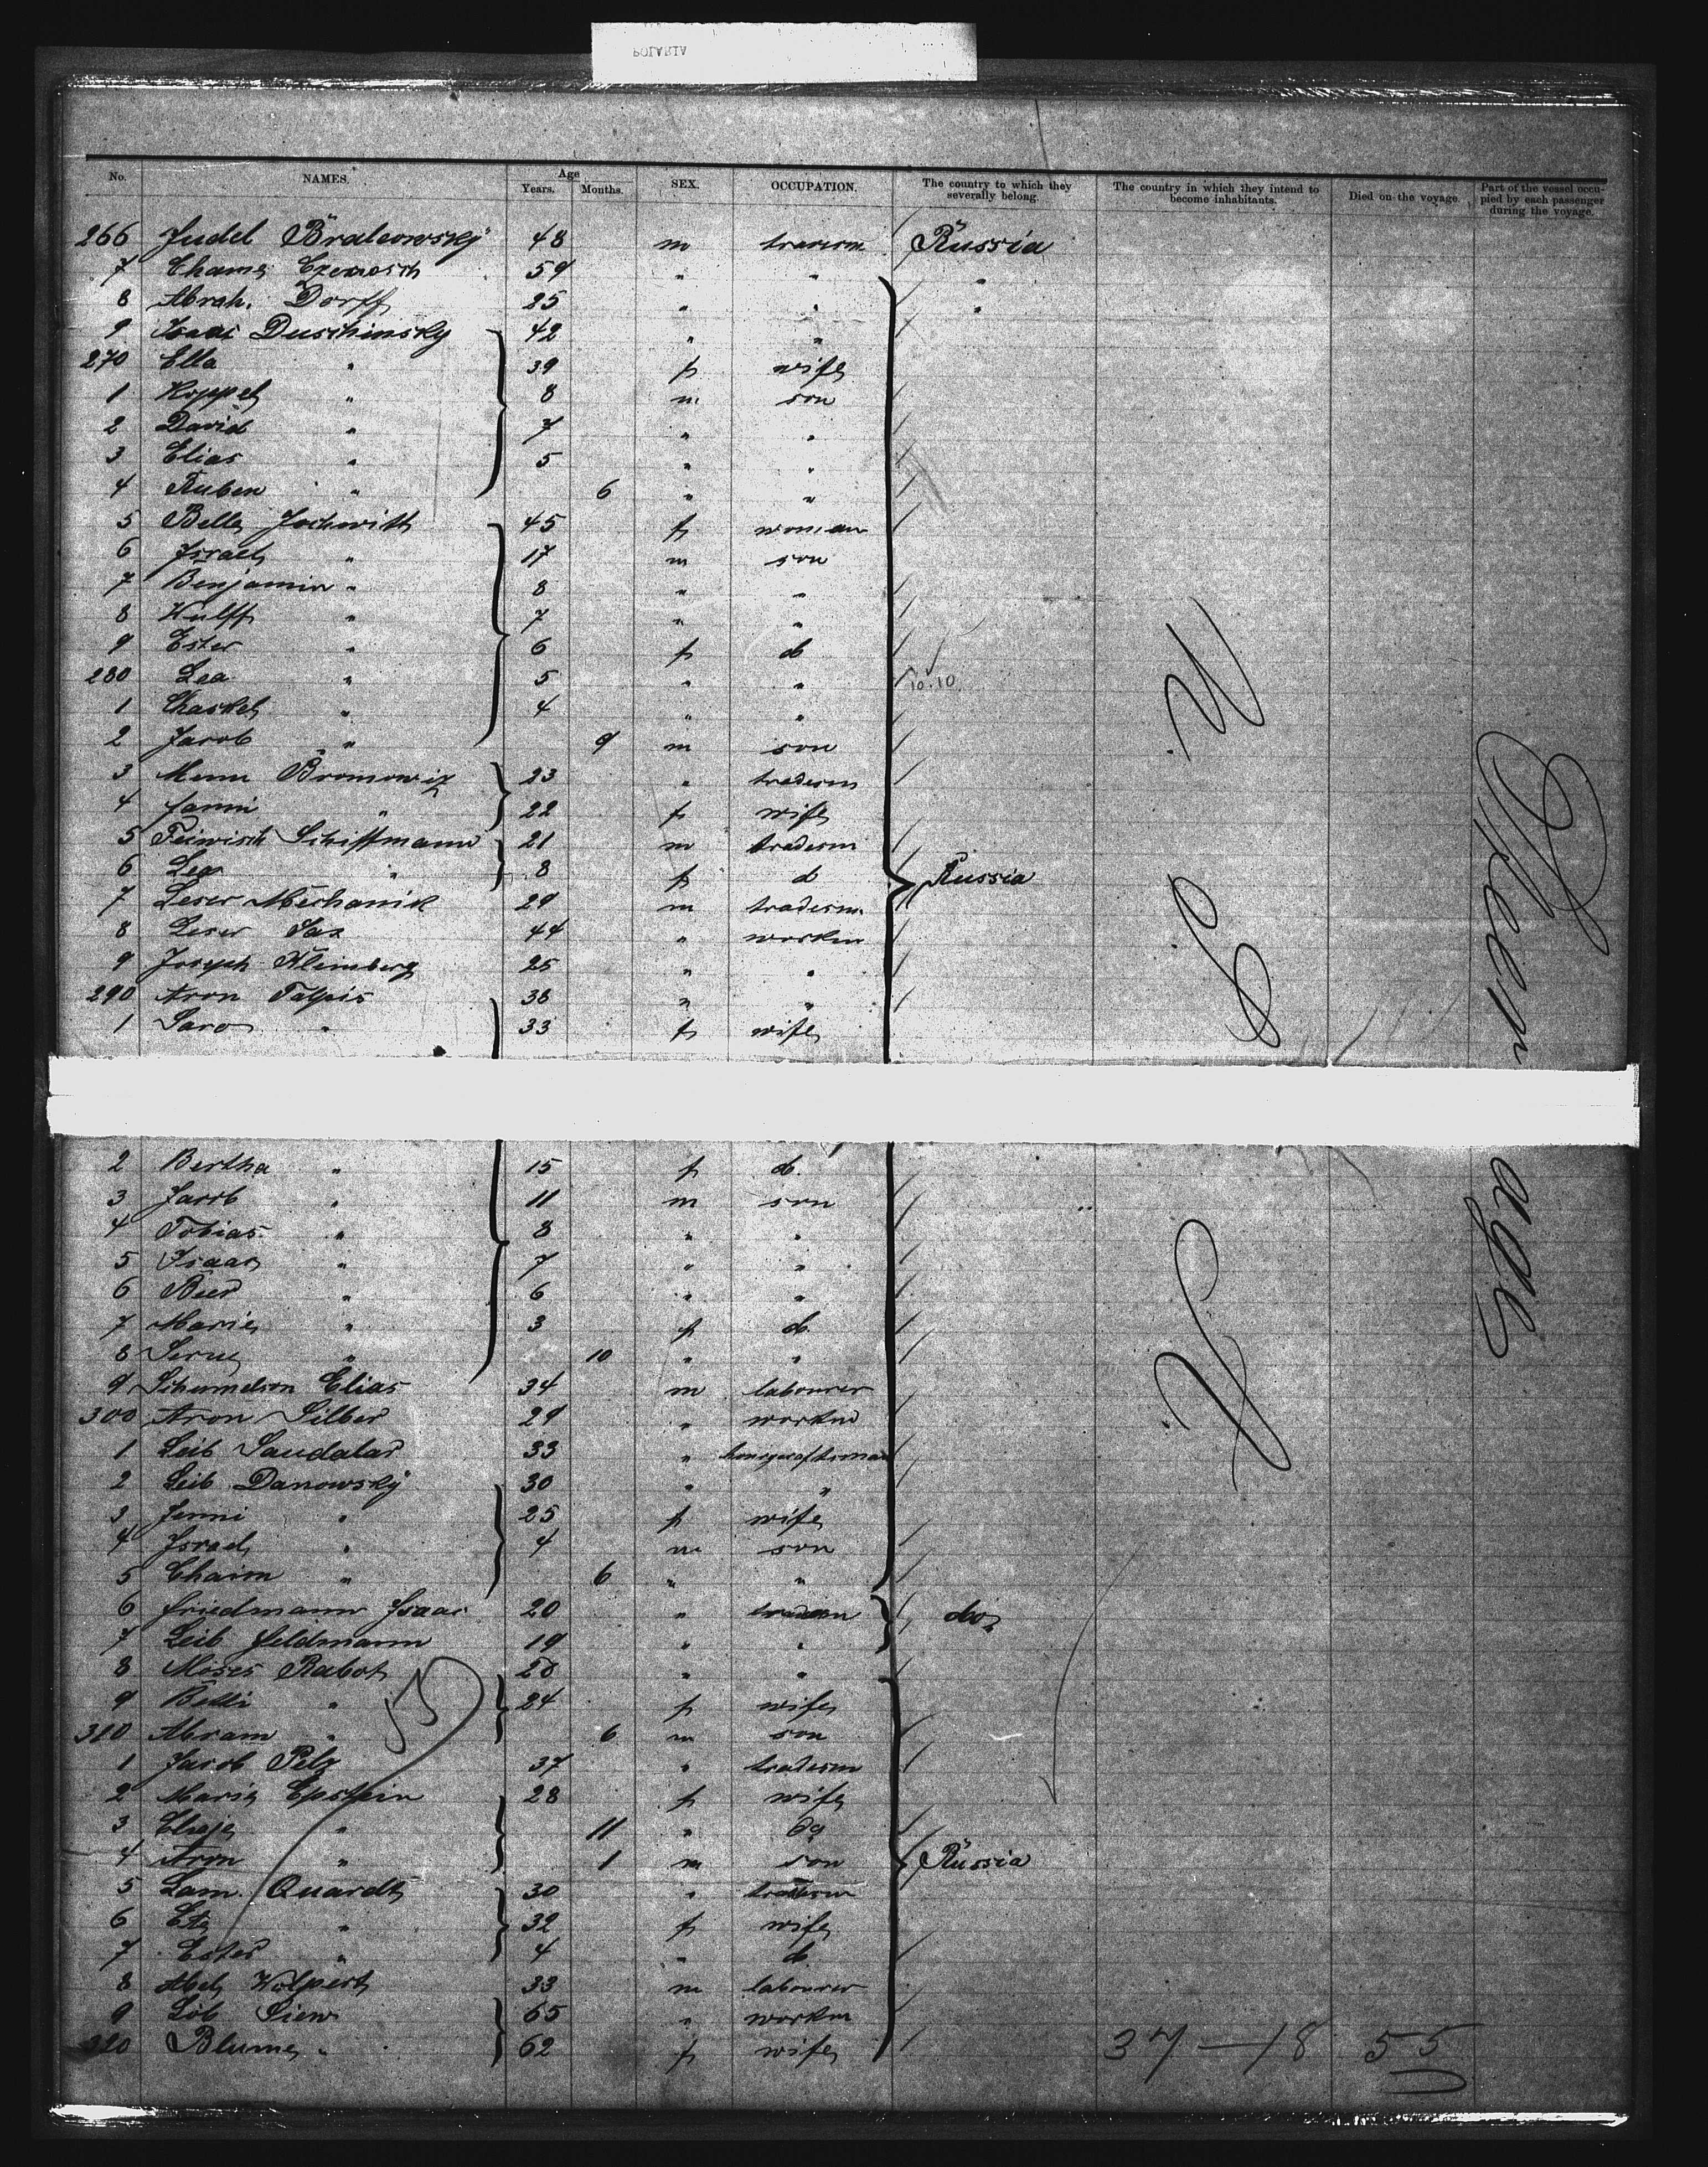 POLARIA
No. NAMES. Age Years. Months. SEX. OCCUPATION. The country to which they severally belong. The country in which they intend to become inhabitants. Died on the voyage. Part of the vessel occupied by each passenger during the voyage.
266 Judel 48 m Russia
7 59 " " "
8 Abrah. Dorff 25 " " "
9 Isaac Duschinsky 42 " "
270 Ella " 39 f wife
1 Koppel " 8 m son
2 David " 7 " "
3 Elias " 5 " "
4 Ruben " 6 " "
5 Belle Jochwith 45 f woman
6 Israel " 17 m son
7 Benjamin " 8 " "
8 Wulff " 7 " "
9 Ester " 6 f d
280 Lea " 5 " " 10.10
1 Chaskel " 4 " "
2 Jacob " 9 m son
3 Bromowiz 23 " tradesm
4 Fanni " 22 f wife
5 Feiwisch Schiffmann 21 m tradesm
6 Lea " 8 f d Russia
7 Leser Mechanik 29 m tradesm.
8 Leser Sax 44 " workm
9 Joseph Kleinberg 25 " "
290 Aron Talpis 38 " "
1 Sara " 33 f wife
2 Bertha " 15 f d.
3 Jacob " 11 m son
4 Tobias " 8 " "
5 Isaac " 7 " "
6 Beer " 6 " "
7 Marie " 3 f d.
8 " 10 " "
9 Schumelson Elias 34 m labourer
300 Aron Silber 29 " workm
1 Leib Sandalar 33 "
2 Leib Danowsky 30 " "
3 Jenni " 25 f wife
4 Israel " 4 m son
5 Chaim " 6 " "
6 Friedmann Isaac 20 " tradesm do
7 Leib Feldmann 19 " "
8 Moses Rabot 28 " "
9 Betti " 24 f wife
310 Abram " 6 m son
1 Jacob Pelz 37 " tradesm
2 Marie Epstein 28 f wife
3 " 11 "
4 Aron " 1 m son Russia
5 Lam. Quardt 30 " tradesm
6 Eta " 32 f wife
7 Ester " 4 " d.
8 Abel Wolpert 33 m labourer
9 Löb Siew 65 " workm
320 Blume " 62 f wife 37 - 18 55